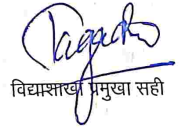 विद्याशाखा प्रमुखा सही